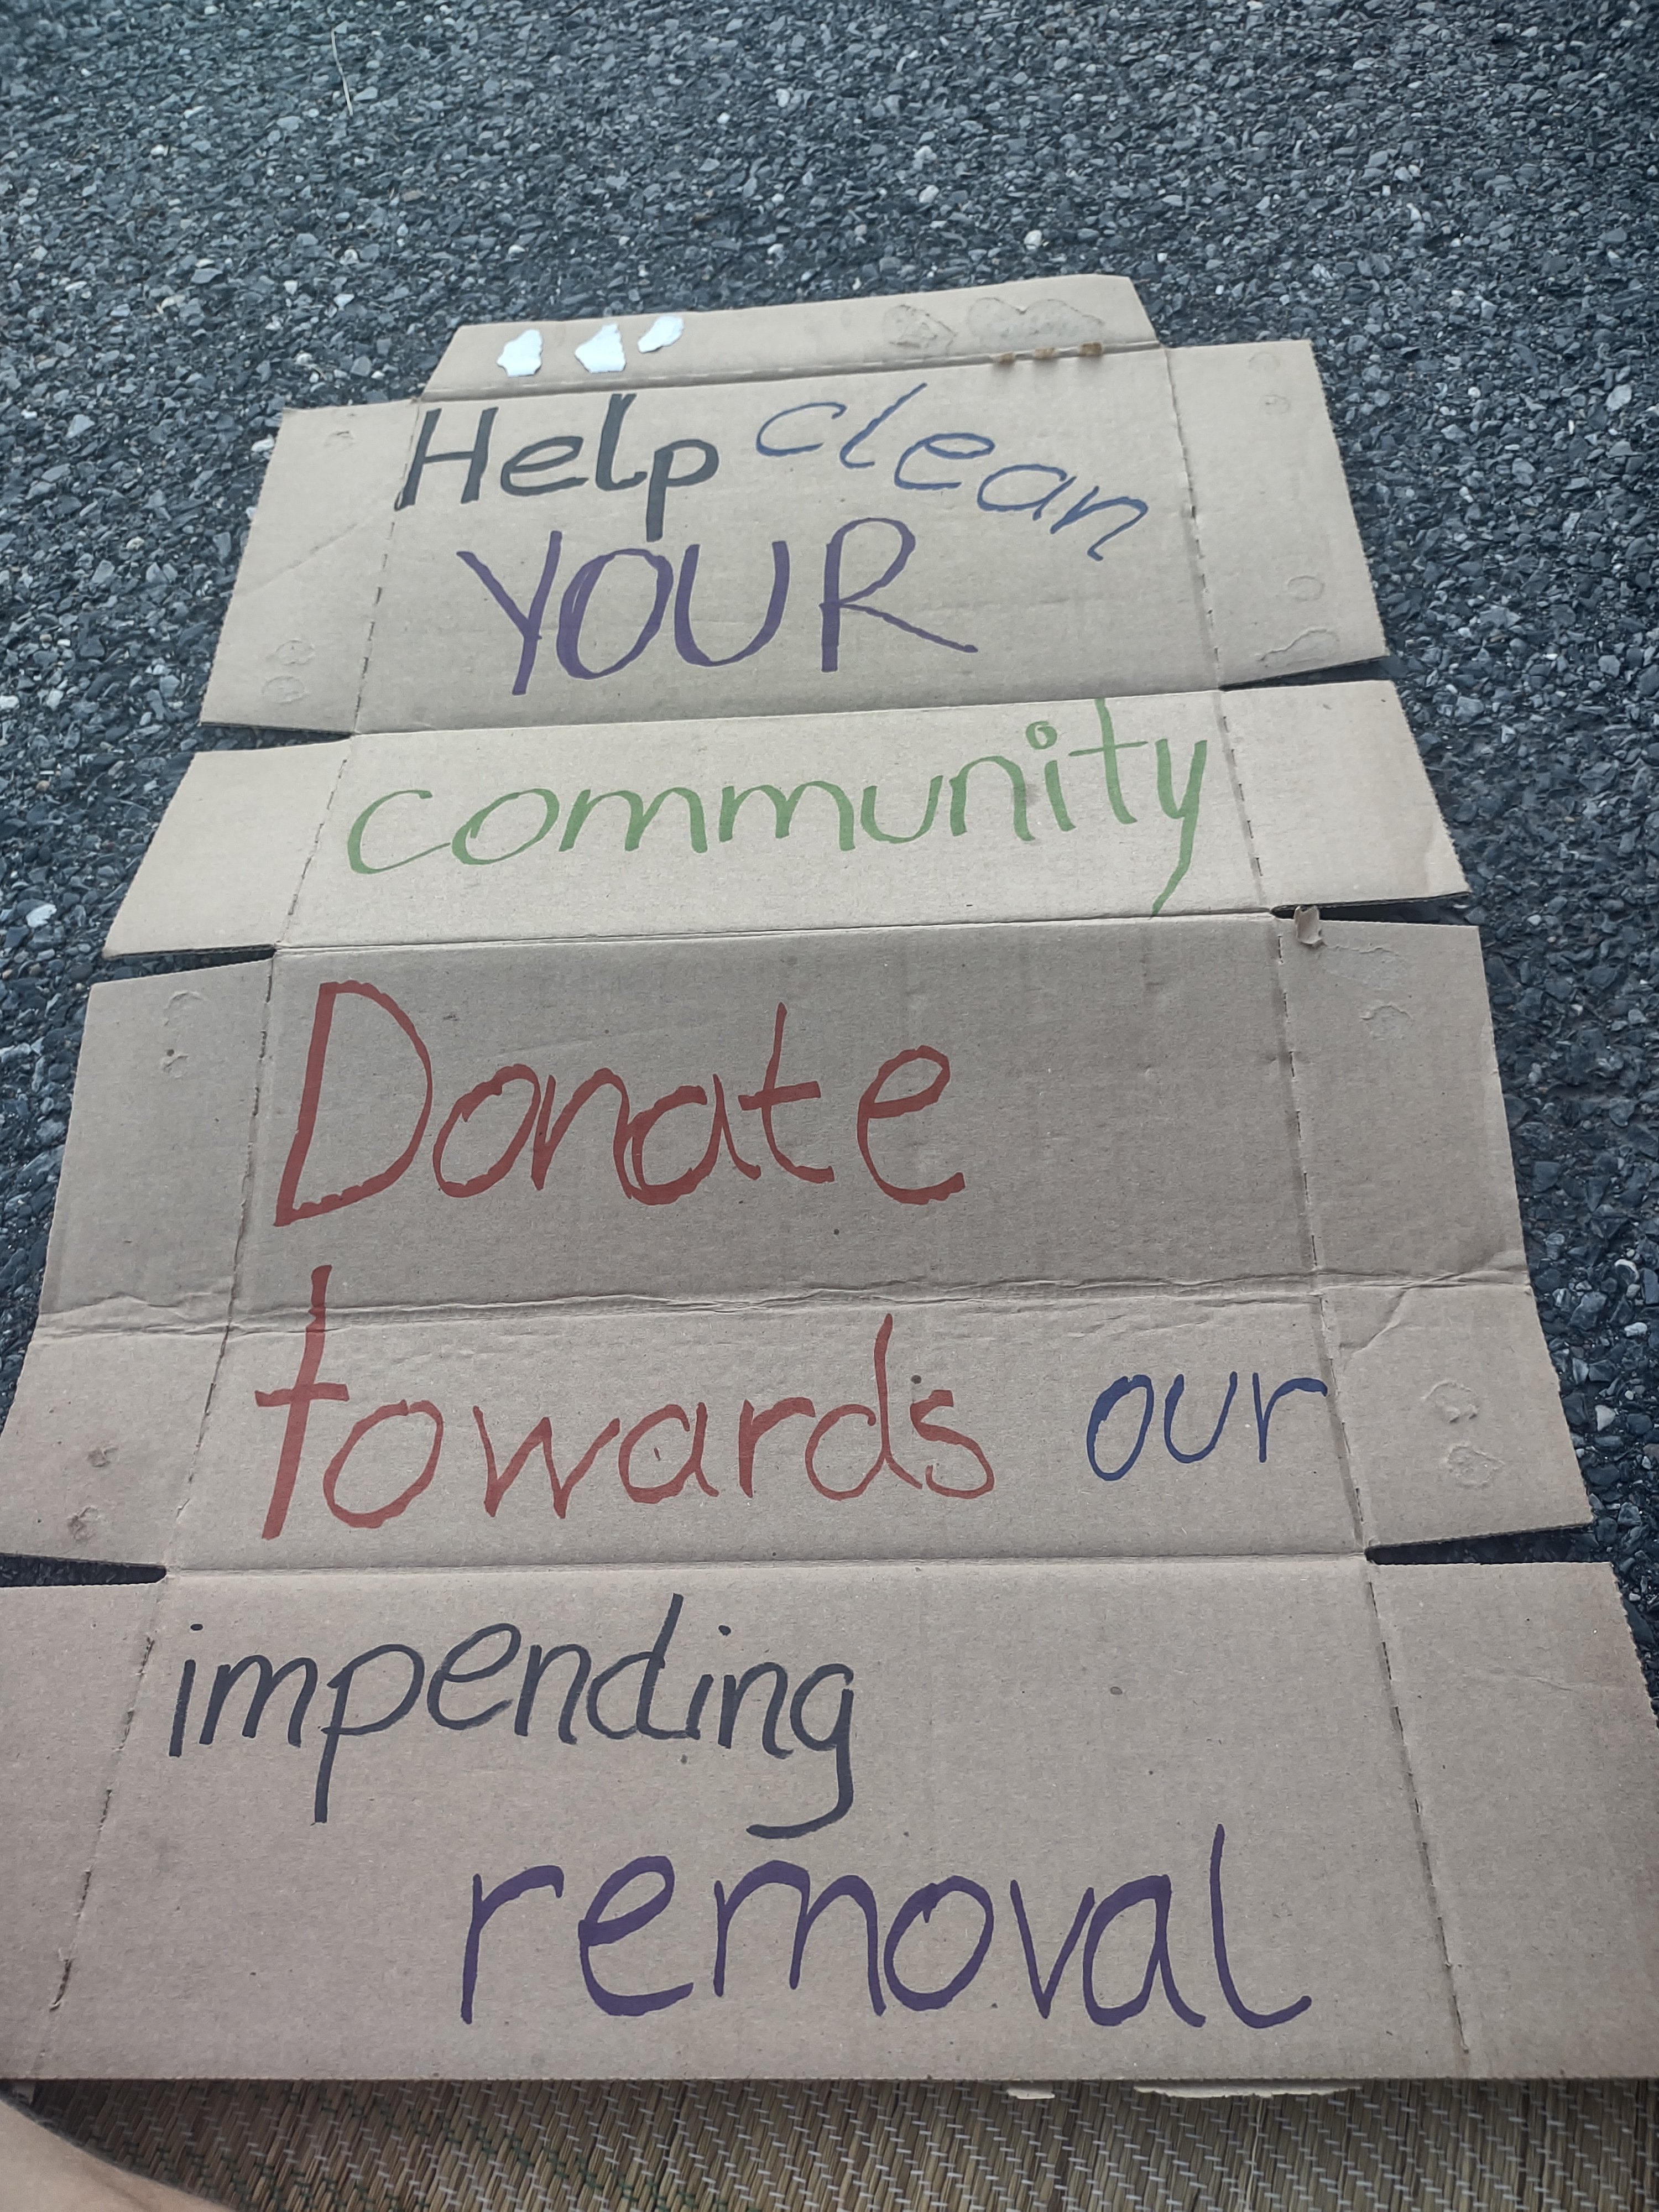 Help clean
YOUR
community
Donate
towards our
impending
removal